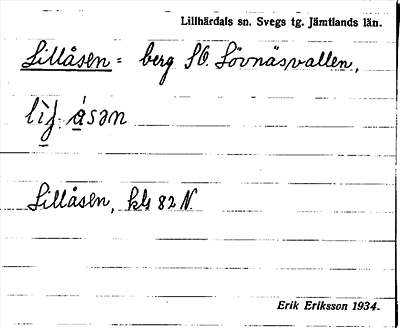 Lillhärdals sn. Svegs tg. Jämtlands län.
Lillåsen = berg SO. Lövnäsvallen,
Lillåsen, kbl 82 N.
Erik Eriksson 1934.